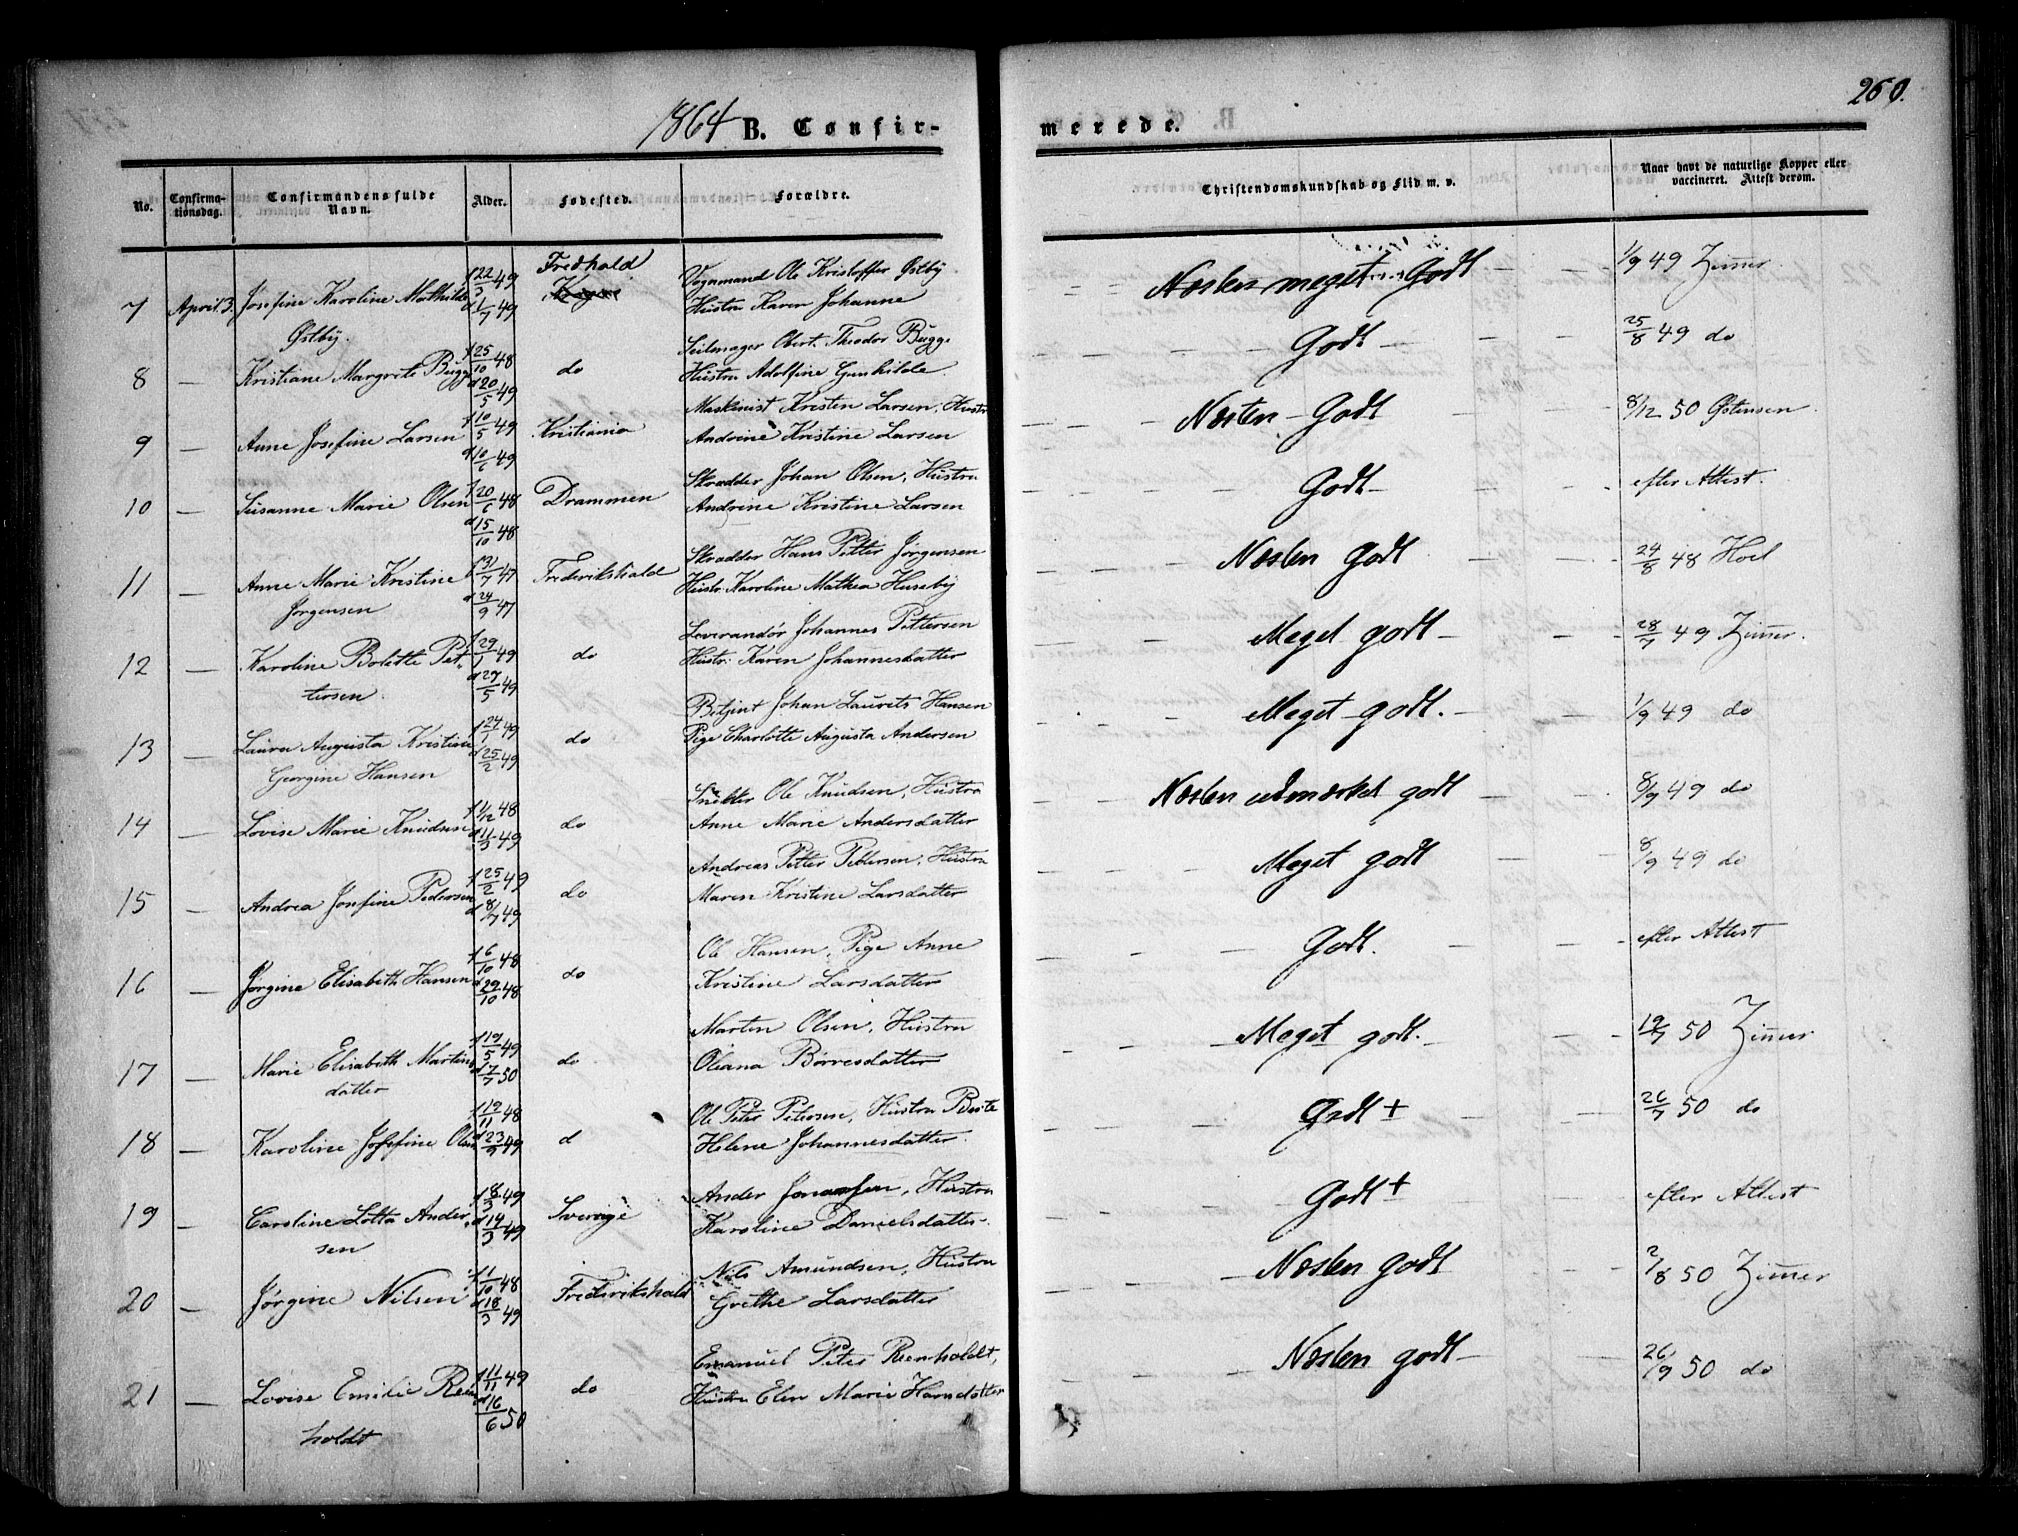 260.
1864 B. Confir-merede.
No. Confirma-tionsdag. Confirmandens fulde Navn. Alder. Fødested. Forældre. Christendomskundskab og Flid m. v. Naar havt de naturlige Kopper eller vaccineret. Attest derom.
Fredhald
7 April 3. Josefine Karoline Mathilde f 22/3 49 d 1/7 49 Vognmand Ole Kristoffer Østby Nœsten meget Godt 1/9 49 Zimer.
Østby. Hustru Karen Johanne
Seilmager Obert Theodor Bugge
8 — Kristiane Margrete Bugge f 25/10 48 d 20/5 49 do Hustru Adolfine Gunhilde Godt 25/8 49 do
Maskinist Kristen Larsen, Hustr
9 — Anne Josefine Larsen f 10/5 49 d 10/6 49 Kristiania Andrine Kristine Larsen Nœsten Godt 8/12 50 Østensen
Skrædder Johan Olsen, Hustru
10 — Susanne Marie Olsen f 20/6 48 d 15/10 48 Drammen Andrine Kristine Larsen Godt efter Attest.
Skrædder Hans Petter Jørgensen
11 — Anne Marie Kristine f 31/7 47 d 24/9 47 Frederikshald Hustr. Karoline Mathea Huseby Nœsten Godt 24/8 48 Hoel
Jørgensen
Leverandør Johannes Pettersen
12 — Karoline Bolette Pet- f 29/1 49 d 27/5 49 do Hustr. Karen Johannesdatter Meget godt 28/7 49 Zimer.
tersen.
Betjent Johan Laurits Hansen
13 — Laura Augusta Kristine f 24/1 49 d 25/2 49 do Pige Charlotte Augusta Andersen Meget godt. 1/9 49 do
Georgine Hansen
Snekker Ole Knudsen, Hustru
14 — Lovise Marie Knudsen f 4/12 48 d 11/3 49 do Anne Marie Andersdatter Nœsten udmœrket godt 8/9 49 do
Andreas Petter Pettersen, Hustru
15 — Andrea Josefine Pedersen f 25/2 49 d 8/7 49 do Maren Kristine Larsdatter Meget godt 8/9 49 do
Ole Hansen, Pige Anne
16 — Jørgine Elisabeth Hansen f 6/10 48 d 29/10 48 do Kristine Larsdatter Godt. efter Attest
Martin Olsen, Hustru
17 — Marie Elisabeth Martins f 19/5 49 d 7/7 50 do Oliana Børresdatter Meget godt. 19/7 50 Zimer
datter
Ole Peter Petersen, Hustru Berte
18 — Karoline Josefine Olsen f 19/11 48 d 23/9 49 d Helene Johannesdatter. Godt + 26/7 50 do
Ander Jonassen, Hustru
19 — Caroline Lotta Ander- f 8/3 49 d 14/3 49 Sverige Karoline Danielsdatter Godt + efter Attest
sen
Nils Amundsen, Hustru
20 — Jørgine Nilsen f 1/10 48 d 18/3 49 Frederikshald Grethe Larsdatter Nœsten godt 2/8 50 Zimer
Emanuel Peter Reenholdt,
21 — Lovise Emilie Reen f 11/11 49 d 16/6 50 do Hustru Elen Marie Hansdatter Nœsten godt 26/9 50 do
holdt